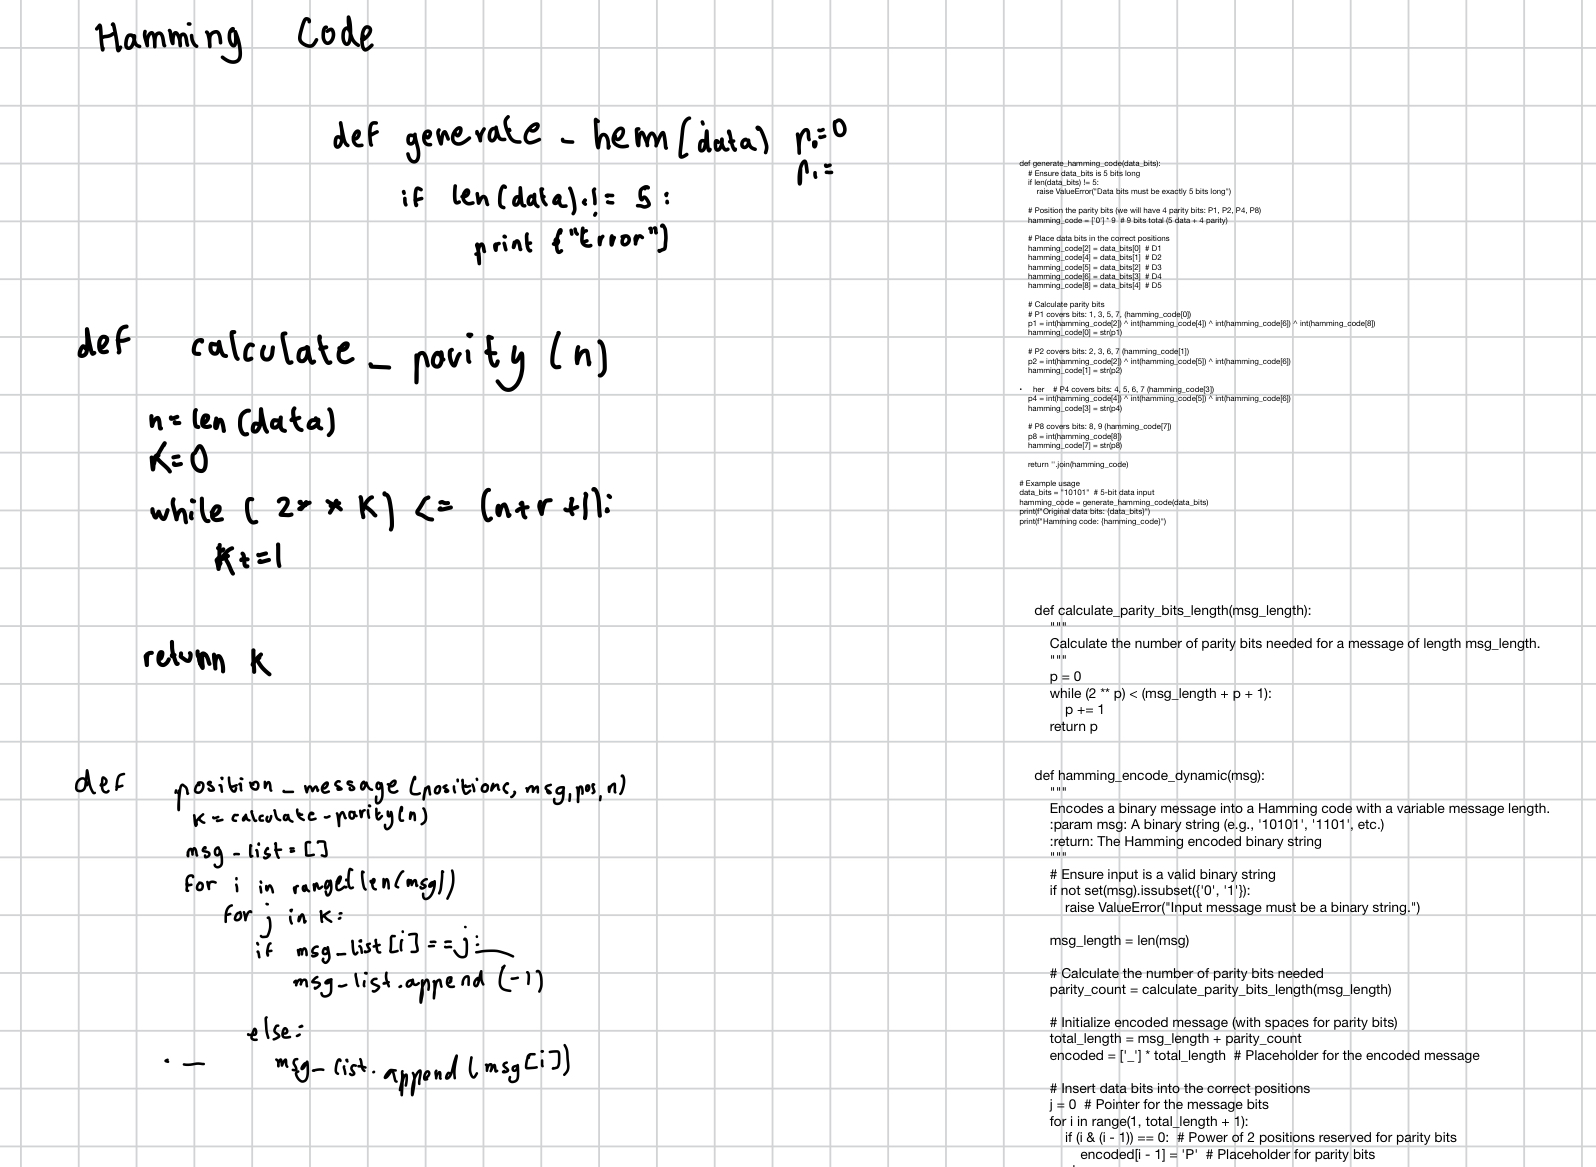 Hamming Code
def generate_hemm(data) r0=0
r1=
if len(data).!= 5:
print ("Error")
def calculate_parity (n)
n=len(data)
K=0
while (2**K) <= (n+r+1):
K+=1
return K
def position_message (positions, msg, pos, n)
K=calculate-parity(n)
msg-list=[]
for i in range(len(msg))
for j in K:
if msg_list[i]==j:
msg-list.append (-1)
else:
msg-list.append(msg[i])
def generate_hamming_code(data_bits):
# Ensure data_bits is 5 bits long
if len(data_bits) != 5:
raise ValueError("Data bits must be exactly 5 bits long")
# Position the parity bits (we will have 4 parity bits: P1, P2, P4, P8)
hamming_code = ['0'] * 9  # 9 bits total (5 data + 4 parity)
# Place data bits in the correct positions
hamming_code[2] = data_bits[0]  # D1
hamming_code[4] = data_bits[1]  # D2
hamming_code[5] = data_bits[2]  # D3
hamming_code[6] = data_bits[3]  # D4
hamming_code[8] = data_bits[4]  # D5
# Calculate parity bits
# P1 covers bits: 1, 3, 5, 7, (hamming_code[0])
p1 = int(hamming_code[2]) ^ int(hamming_code[4]) ^ int(hamming_code[6]) ^ int(hamming_code[8])
hamming_code[0] = str(p1)
# P2 covers bits: 2, 3, 6, 7 (hamming_code[1])
p2 = int(hamming_code[2]) ^ int(hamming_code[5]) ^ int(hamming_code[6])
hamming_code[1] = str(p2)
• her # P4 covers bits: 4, 5, 6, 7 (hamming_code[3])
p4 = int(hamming_code[4]) ^ int(hamming_code[5]) ^ int(hamming_code[6])
hamming_code[3] = str(p4)
# P8 covers bits: 8, 9 (hamming_code[7])
p8 = int(hamming_code[8])
hamming_code[7] = str(p8)
return ''.join(hamming_code)
# Example usage
data_bits = "10101"  # 5-bit data input
hamming_code = generate_hamming_code(data_bits)
print(f"Original data bits: {data_bits}")
print(f"Hamming code: {hamming_code}")
def calculate_parity_bits_length(msg_length):
"""
Calculate the number of parity bits needed for a message of length msg_length.
"""
p = 0
while (2 ** p) < (msg_length + p + 1):
p += 1
return p
def hamming_encode_dynamic(msg):
"""
Encodes a binary message into a Hamming code with a variable message length.
:param msg: A binary string (e.g., '10101', '1101', etc.)
:return: The Hamming encoded binary string
"""
# Ensure input is a valid binary string
if not set(msg).issubset({'0', '1'}):
raise ValueError("Input message must be a binary string.")
msg_length = len(msg)
# Calculate the number of parity bits needed
parity_count = calculate_parity_bits_length(msg_length)
# Initialize encoded message (with spaces for parity bits)
total_length = msg_length + parity_count
encoded = ['_'] * total_length  # Placeholder for the encoded message
# Insert data bits into the correct positions
j = 0  # Pointer for the message bits
for i in range(1, total_length + 1):
if (i & (i - 1)) == 0:  # Power of 2 positions reserved for parity bits
encoded[i - 1] = 'P'  # Placeholder for parity bits